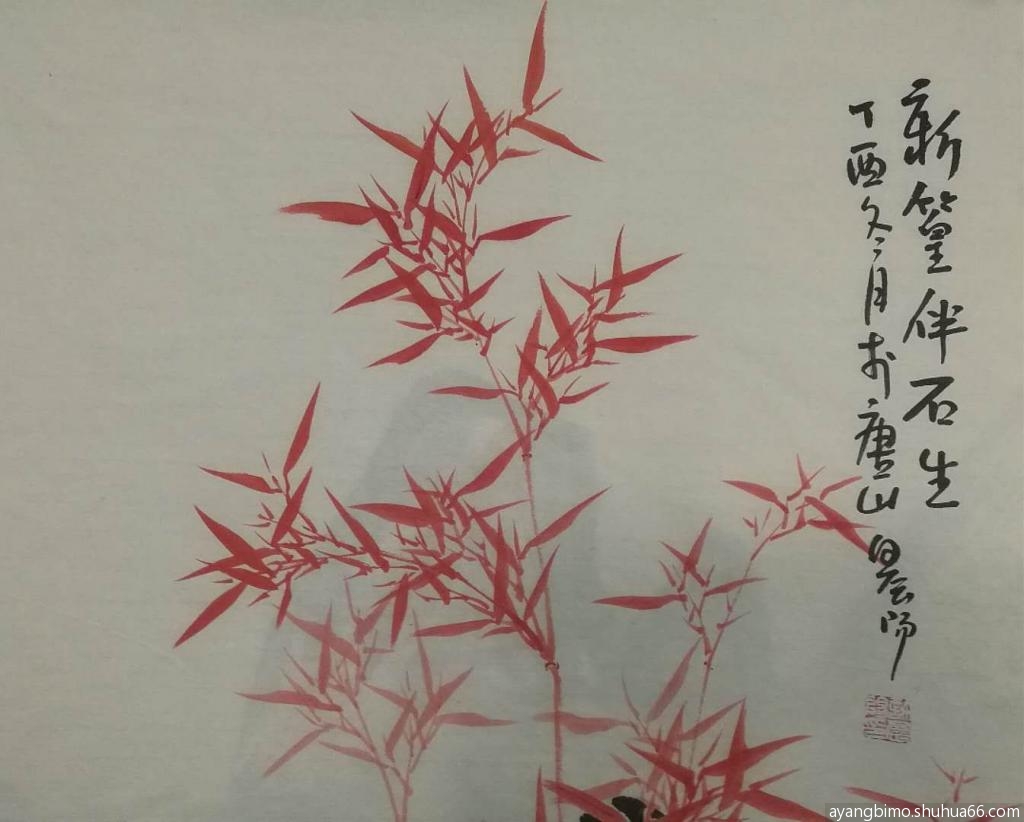 新篁伴石生
丁酉冬月于唐山
ayangbimo.shuhua66.com